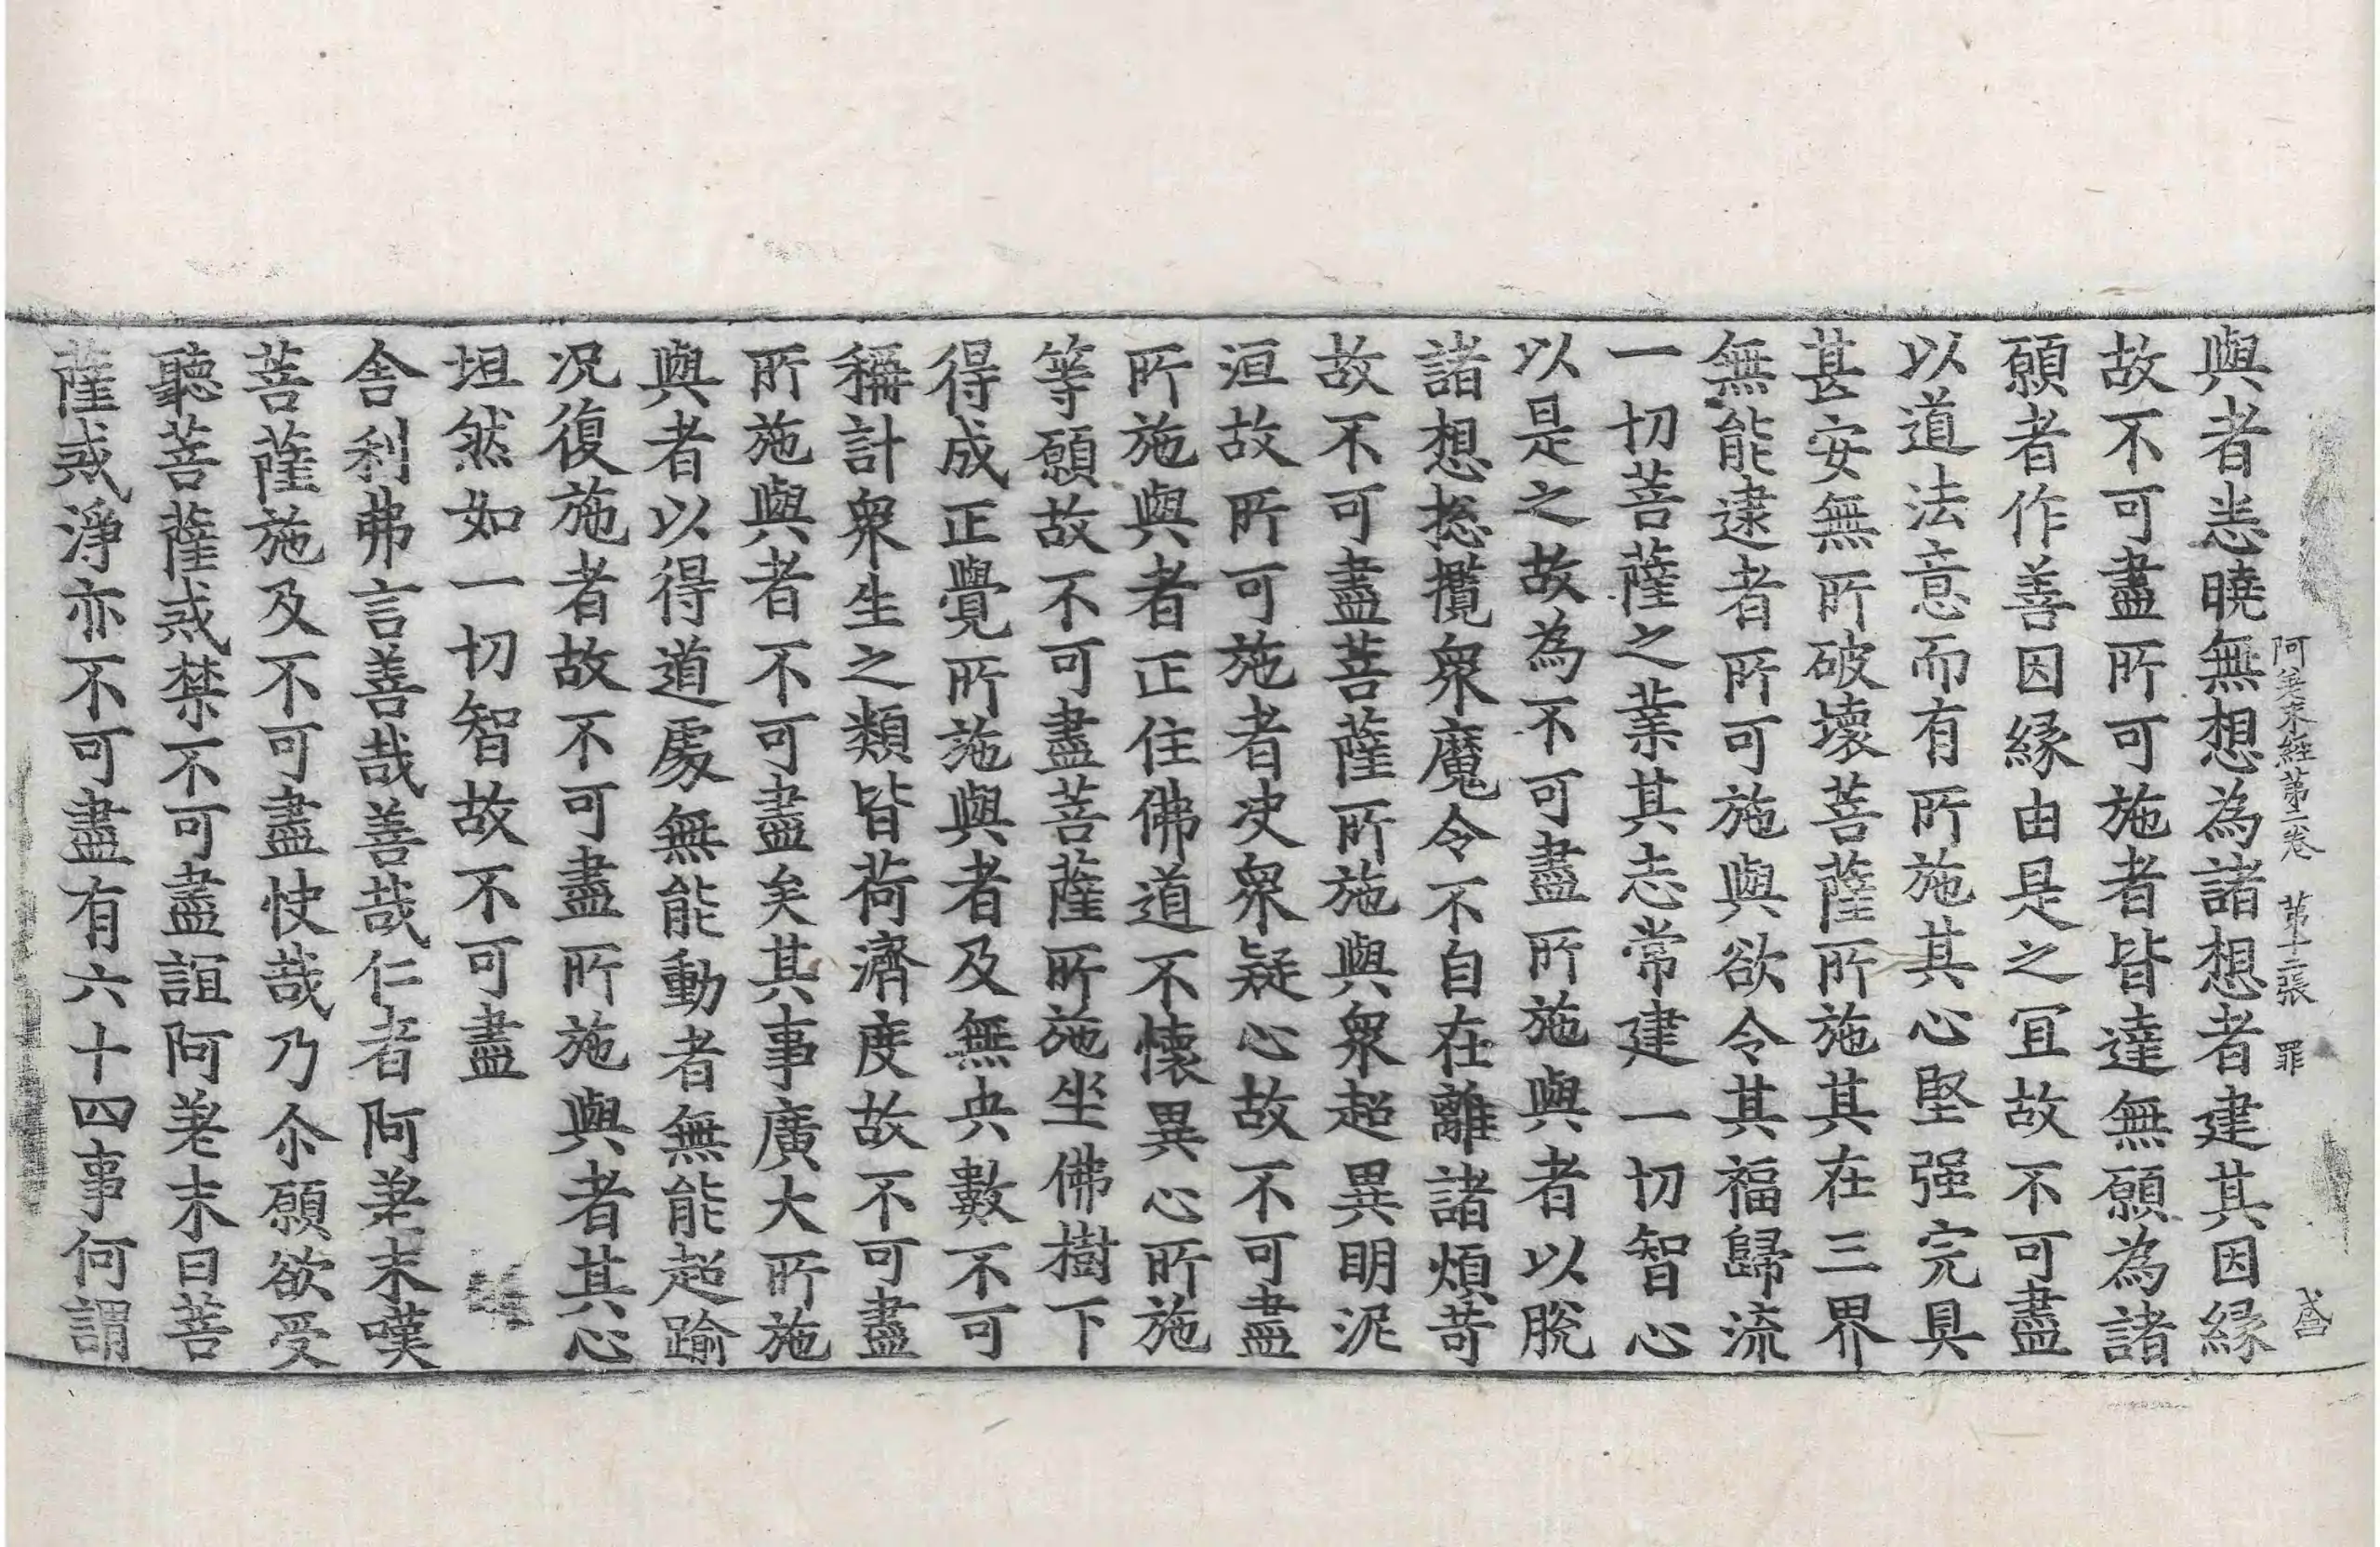 阿差末經第二卷 第十二張 罪
與者恙曉無想為諸想者建其因縁
故不可盡所可施者皆達無願為諸
願者作善因縁由是之冝故不可盡
以道法意而有所施其心堅强完具
甚安無所破壞菩薩所施其在三界
無能逮者所可施與欲令其福歸流
一切菩薩之業其志常建一切智心
以是之故為不可盡所施與者以脫
諸想捴攬衆魔令不自在離諸煩苛
故不可盡菩薩所施與衆超異明泥
洹故所可施者决衆疑心故不可盡
所施與者正住佛道不懷異心所施
等願故不可盡菩薩所施坐佛樹下
得成正覺所施與者及無央數不可
稱計衆生之類皆荷濟度故不可盡
所施與者不可盡矣其事廣大所施
與者以得道處無能動者無能超踰
况復施者故不可盡所施與者其心
坦然如一切智故不可盡
舎利弗言善哉善哉仁者阿差末嘆
菩薩施及不可盡快哉乃尒願欲受
聽菩薩戒禁不可盡誼阿差末曰菩
薩戒淨亦不可盡有六十四事何謂